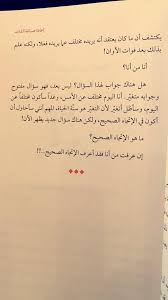 يكتشف أن ما كان يعتقد أنه يريده مختلف عما يريده فعلا، ولكنه علم
بذلك بعد فوات الأوان!
أنا من أنا؟
هل هناك جواب لهذا السؤال؟ ليس بعد، فهو سؤال مفتوح
وجوابه متغير. أنا اليوم مختلف عن الأمس، وغداً سأكون مختلفاً عن
اليوم، وسأظل أتغيّر. لأن التغيّر هو سنّة الحياة، المهم أنني سأحاول أن
أكون في الاتجاه الصحيح، ولكن هناك سؤال جديد يظهر الآن!
ما هو الاتجاه الصحيح؟
إن عرفت من أنا فقد أعرف الاتجاه الصحيح...!!